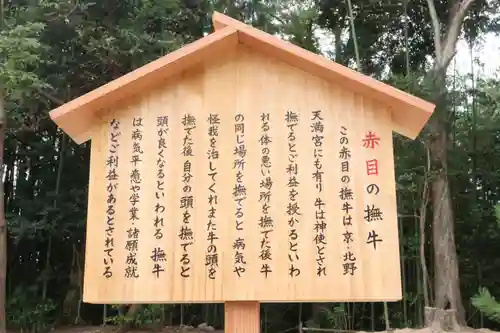 赤目の撫牛
この赤目の撫牛は京·北野
天満宮にも有り 牛は神使とされ
撫でるとご利益を授かるといわ
れる 体の悪い場所を撫でた後牛
の同じ場所を撫でると 病気や
怪我を治してくれ また牛の頭を
撫でた後 自分の頭を撫でると
頭が良くなるといわれる 撫牛
は病気平癒や学業、諸願成就
などご利益があるとされている